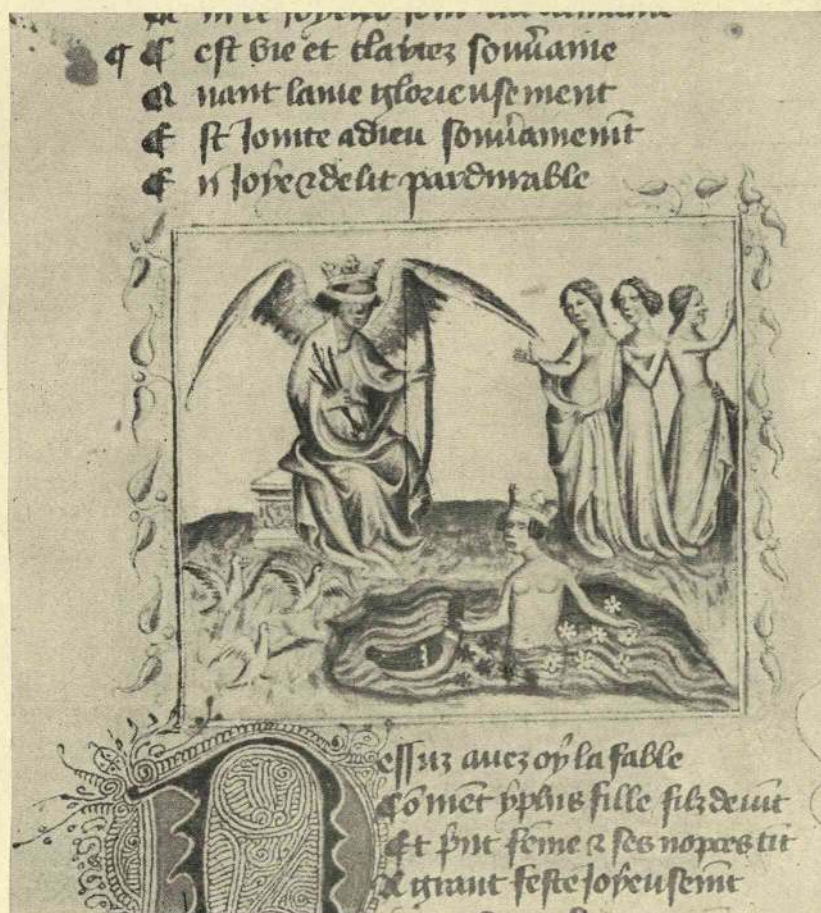 ¶ C est vie et clartez souv̄aine
Q uant lame glorieusement
E st Jointe a dieu souv̄ainemēt
E n Joye ⁊ delit pardurable
D essuz auez oy la fable
Cōmēt yplis fille filz deuīt
Et p̄nt fēme ⁊ ses nopces tīt
A grant feste Joyeusemēt